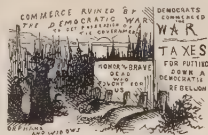 COMMERCE RUINED BY
THE DEMOCRATIC WAR
TO GET POSSESSION OF
THE GOVERNMENT
DEMOCRATS
COMMENCED
THE
WAR
TAXES
FOR PUTTING
DOWN A
DEMOCRATIC
REBELLION
HONOR THE BRAVE
DEAD
WHO
FOUGHT FOR
US
ORPHANS
AND WIDOWS